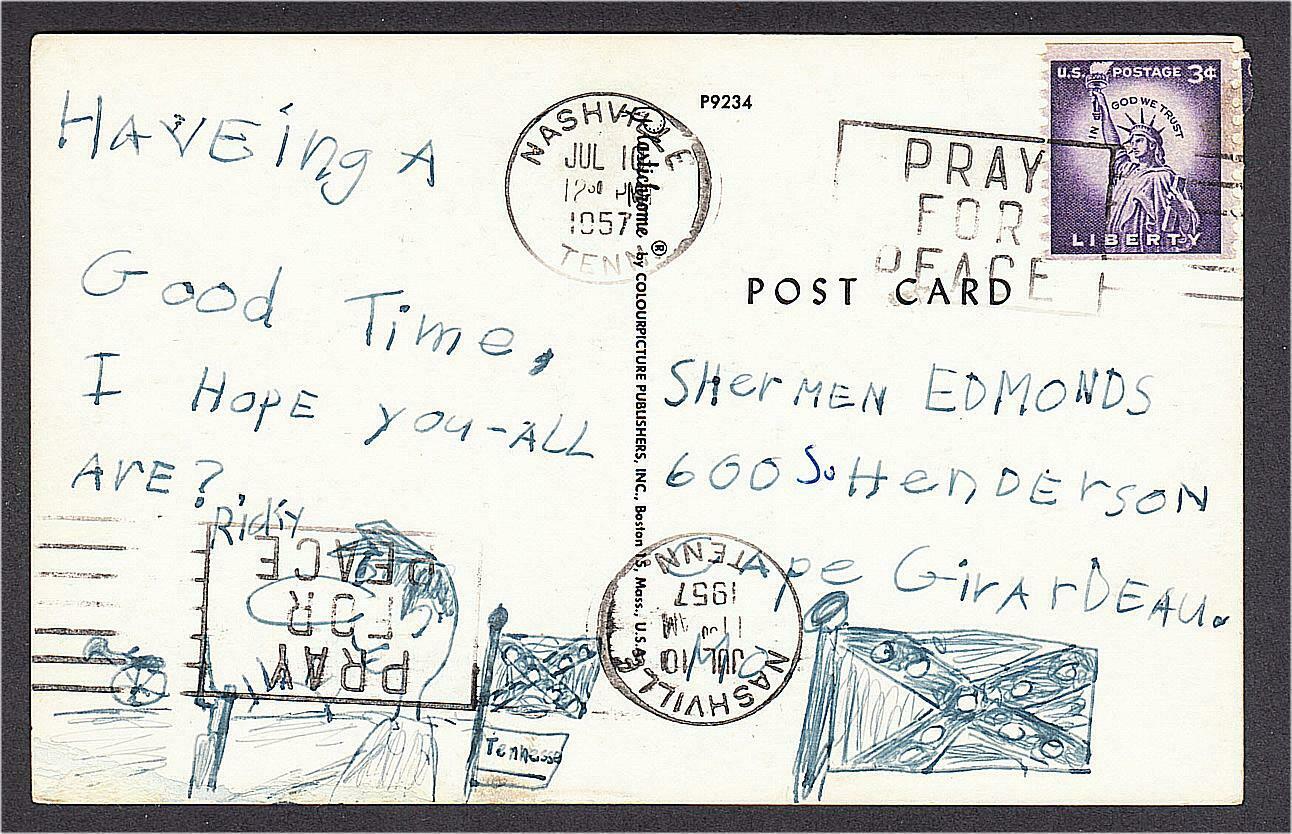 HAVEing A
Good Time,
I HOPE you-ALL
ArE?
Ricky
Tennesse
NASHVILLE
JUL 10
12 PM
1957
TENN
Plastichrome ® by COLOURPICTURE PUBLISHERS, INC., Boston 15, Mass., U.S.A.
P9234
PRAY
FOR
PEACE
U.S. POSTAGE 3¢
IN GOD WE TRUST
LIBERTY
POST CARD
SHerMEN EDMONDS
600 So HenDErSON
CApe GirArDEAU.
Mo
NASHVILLE
JUL 10
11 AM
1957
TENN
PRAY
FOR
PEACE